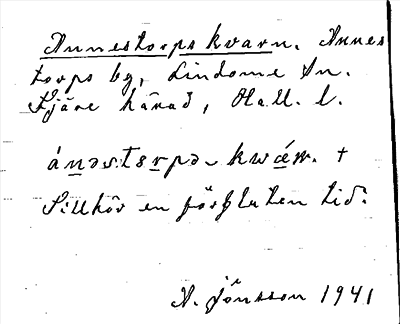 Annestorps kvarn. Annes
torps by, Lindome sn.
Fjäre härad, Hall. l.
Tillhör en förfluten tid.
N. Jönsson 1941